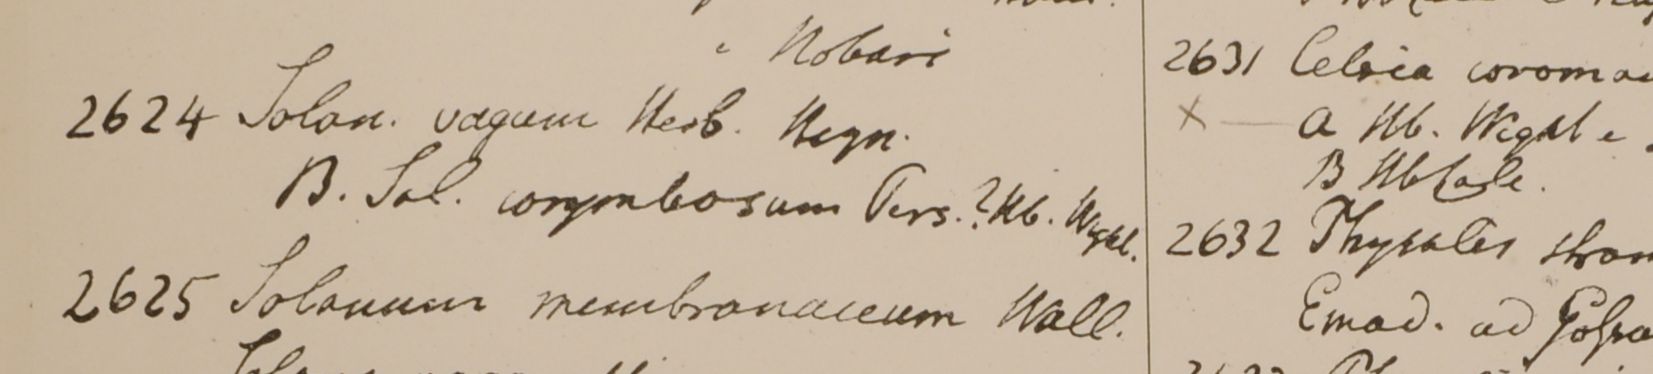 Nobari
2624 Solan. vagum Herb. Heyn.
B. Sol. corymbosum Pers.? Hb. Wight.
2625 Solanum membranaceum Wall.
2631 Celsia
× — a Hb. Wight e
B Hb
2632 Physalis
Emod. ad